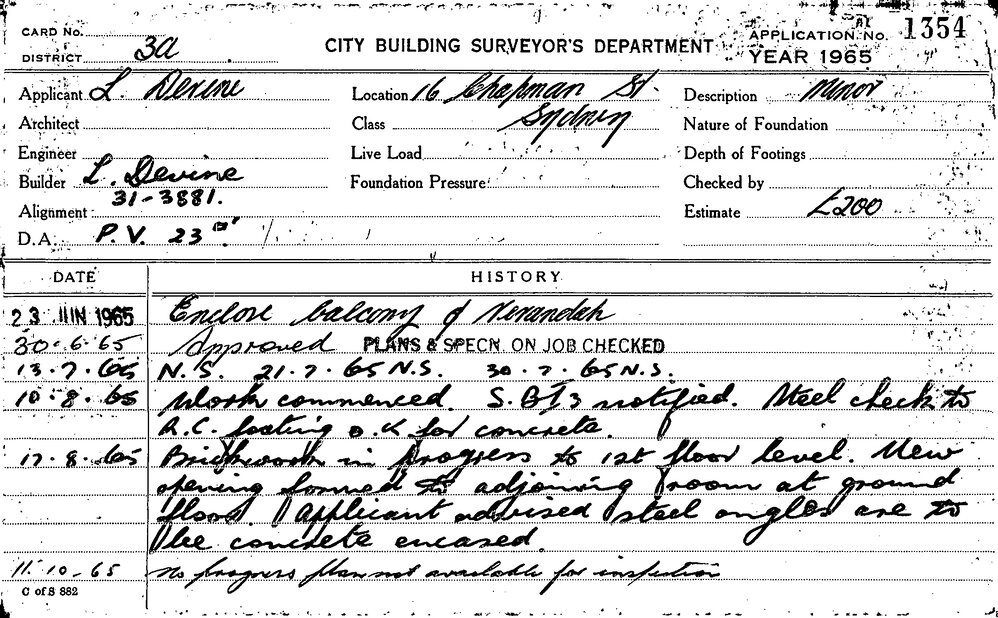 CARD No.
DISTRICT 3a
CITY BUILDING SURVEYOR'S DEPARTMENT
APPLICATION No. 1354
YEAR 1965
Applicant L. Devine
Location 16 Chapman St.
Sydney
Description Minor
Architect
Class
Nature of Foundation
Engineer
Live Load
Depth of Footings
Builder L. Devine
31-3881.
Foundation Pressure
Checked by
Alignment
Estimate £200
D.A. P.V. 23
DATE HISTORY
23 JUN 1965 Enclose balcony of Verandah
30.6.65 Approved PLANS & SPECN. ON JOB CHECKED
13.7.65 N.S. 21.7.65 N.S. 30.7.65 N.S.
10.8.65 Work commenced. S.B.I 3 notified. Steel check to
R.C. footing o.k for concrete.
17.8.65 Brickwork in progress to 1st floor level. New
opening formed to adjoining room at ground
floor. Applicant advised steel angles are to
be concrete encased.
11.10.65 No progress plan not available for inspection
C of S 882